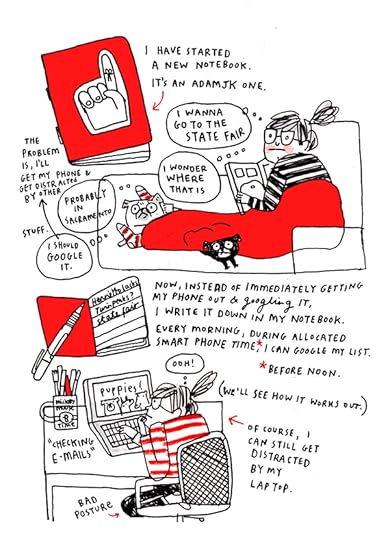 I HAVE STARTED
A NEW NOTEBOOK.
IT'S AN ADAMJK ONE.
I WANNA
GO TO THE
STATE FAIR
THE
PROBLEM
IS, I'LL
GET MY PHONE &
GET DISTRACTED
BY OTHER
STUFF.
I WONDER
WHERE
THAT IS
PROBABLY
IN
SACRAMENTO
I SHOULD
GOOGLE
IT.
Twin peaks?
state fair
NOW, INSTEAD OF IMMEDIATELY GETTING
MY PHONE OUT & googling IT,
I WRITE IT DOWN IN MY NOTEBOOK.
EVERY MORNING, DURING ALLOCATED
SMART PHONE TIME*, I CAN GOOGLE MY LIST.
*BEFORE NOON.
(WE'LL SEE HOW IT WORKS OUT.)
OOH!
puppies!
MICKEY
MOUSE
TIME
"CHECKING
E-MAILS"
OF COURSE, I
CAN STILL GET
DISTRACTED
BY MY
LAPTOP.
BAD
POSTURE